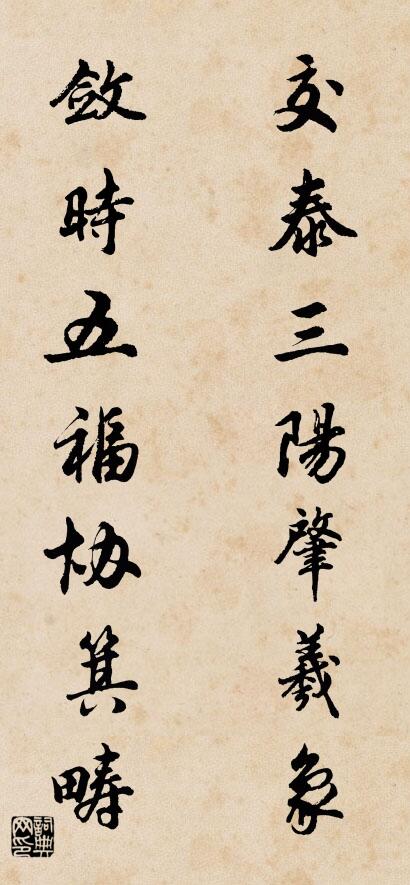 交泰三陽肇羲象
斂時五福協箕疇
詞典網印